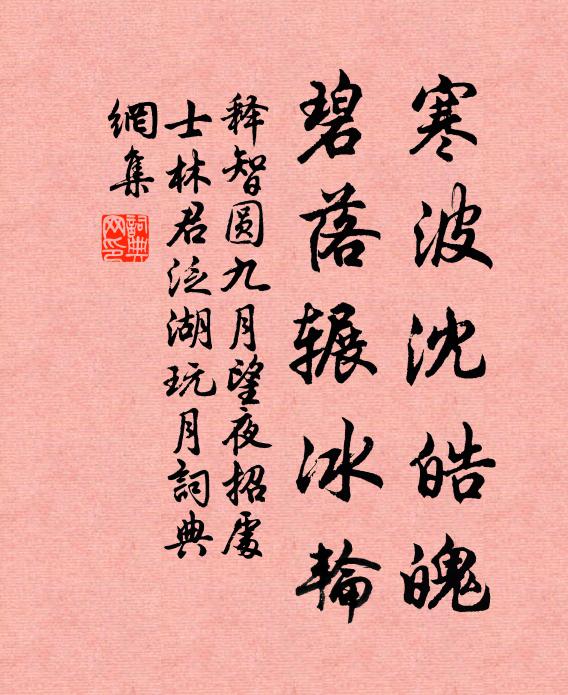 寒波沈皓魄
碧落辗冰輪
释智圆九月望夜招處
士林君泛湖玩月詞典
網集
詞典網印